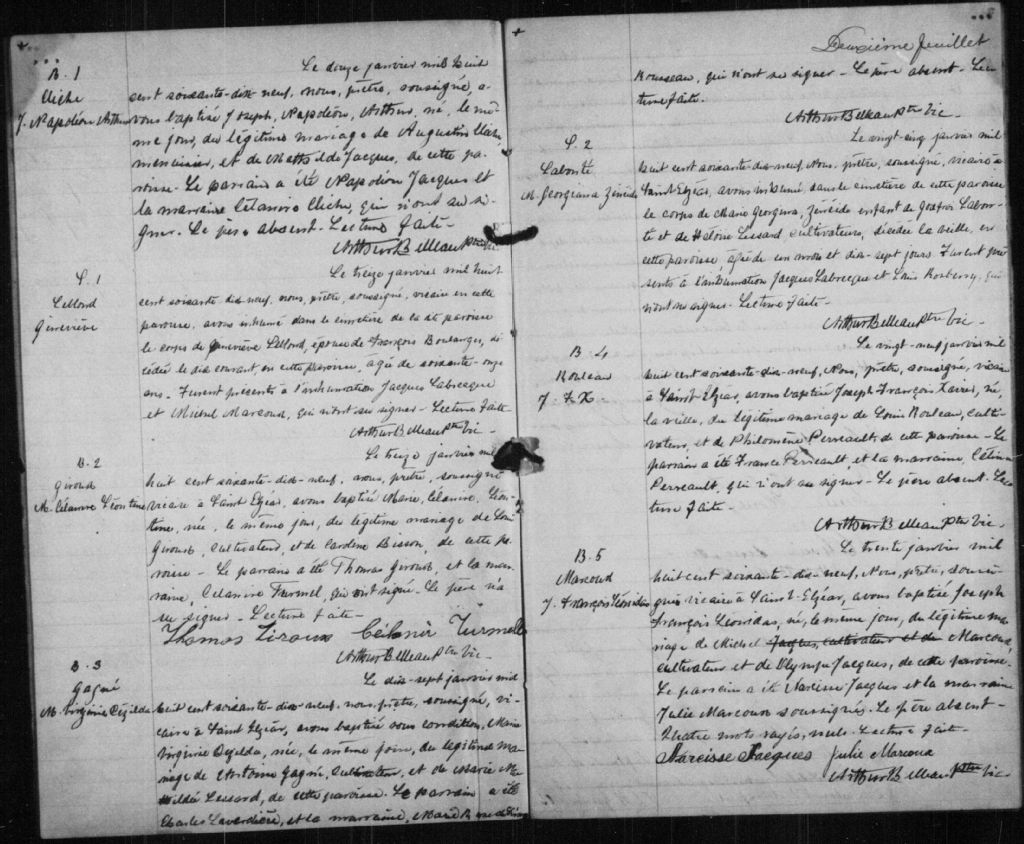 B. 1
Cliche
J. Napoléon Arthur
Le douze janvier mil huit
cent soixante-dix-neuf, nous, prêtre, soussigné, a-
vons baptisé Joseph, Napoléon, Arthur, né, le mê-
me jour, du légitime mariage de Augustin Cliche,
menuisier, et de Mathilde Jacques, de cette pa-
roisse. Le parrain a été Napoléon Jacques et
la marraine Célanire Cliche, qui n'ont su si-
gner. Le père absent. Lecture faite-
Arthur Belleau Ptre Vic-
S. 1
Lessard
Geneviève
Le treize janvier mil huit
cent soixante-dix-neuf, nous, prêtre, soussigné, vicaire en cette
paroisse, avons inhumé dans le cimetière de la dite paroisse
le corps de Geneviève épouse de François Boulanger, dé-
cédée le dix courant en cette paroisse, agée de soixante-onze
ans. Furent présents à l'inhumation Jacques Labrecque
et Michel Marcoux, qui n'ont su signer- Lecture faite-
Arthur Belleau Ptre Vic-
B. 2
Giroux
M. Célanire Léontine
Le treize janvier mil
huit cent soixante-dix-neuf, nous, prêtre, soussigné
vicaire à Saint Elzéar, avons baptisé Marie, Célanire, Léon-
tine, née, le même jour, du légitime mariage de Louis
Giroux, cultivateur, et de Caroline Bisson, de cette pa-
roisse- Le parrain a été Thomas Giroux, et la mar-
raine, Célanire Turmel, qui ont signé. Le père n'a
su signer- Lecture faite-
Thomas Giroux Célanir Turmelle
Arthur Belleau Ptre Vic-
B. 3
Gagné
M. Virginie Orzilda
Le dix-sept janvier mil
huit cent soixante-dix-neuf, nous, prêtre, soussigné, vi-
caire à Saint Elzéar, avons baptisé sous condition, Marie
Virginie née, le même jour, du légitime ma-
riage de Antoine Gagné, cultivateur, et de Marie Ma-
thilde Lessard, de cette paroisse. Le parrain a été
Charles Laverdière, et la marraine, Marie
Deuxième feuillet
Rousseau, qui n'ont su signer- Le père absent- Lec-
ture faite.
Arthur Belleau Ptre Vic-
S. 2
Labonté
M. Georgiana Zéneïde
Le vingt-cinq janvier mil
huit cent soixante-dix-neuf, Nous, prêtre, soussigné, vicaire à
Saint Elzéar, avons inhumé, dans le cimetière de cette paroisse
le corps de Marie Georgina, Zéneïde enfant de Godfroi Labon-
té et de Héloïse Lessard, cultivateurs, décédée la veille, en
cette paroisse, agée de un mois et dix-sept jours. Furent pré-
sents à l'inhumation Jacques Labrecque et Louis qui
n'ont su signer- Lecture faite-
Arthur Belleau Ptre Vic-
B. 4
Rouleau
J. F. X.
Le vingt-neuf janvier mil
huit cent soixante-dix-neuf, Nous, prêtre, soussigné, vicaire
à Saint Elzéar, avons baptisé Joseph François Xavier, né,
la veille, du légitime mariage de Louis Rouleau, culti-
vateur, et de Philomène Perreault, de cette paroisse- Le
parrain a été France Perreault, et la marraine, Célina
Perreault, qui n'ont su signer- Le père absent. Lec-
ture faite-
Arthur Belleau Ptre Vic-
B. 5
Marcoux
J. François Léonidas
Le trente janvier mil
huit cent soixante-dix-neuf, Nous, prêtre, soussi-
gné vicaire à Saint-Elzéar, avons baptisé Joseph
François Léonidas, né, le même jour, du légitime ma-
riage de Michel Jacques, cultivateur et de Marcoux,
cultivateur et de Olympe Jacques, de cette paroisse.
Le parrain a été Narcisse Jacques et la marraine
Julie Marcoux soussignés. Le père absent-
Quatre mots rayés, nuls. Lecture faite-
Narcisse Jacques Julie Marcoux
Arthur Belleau Ptre Vic-